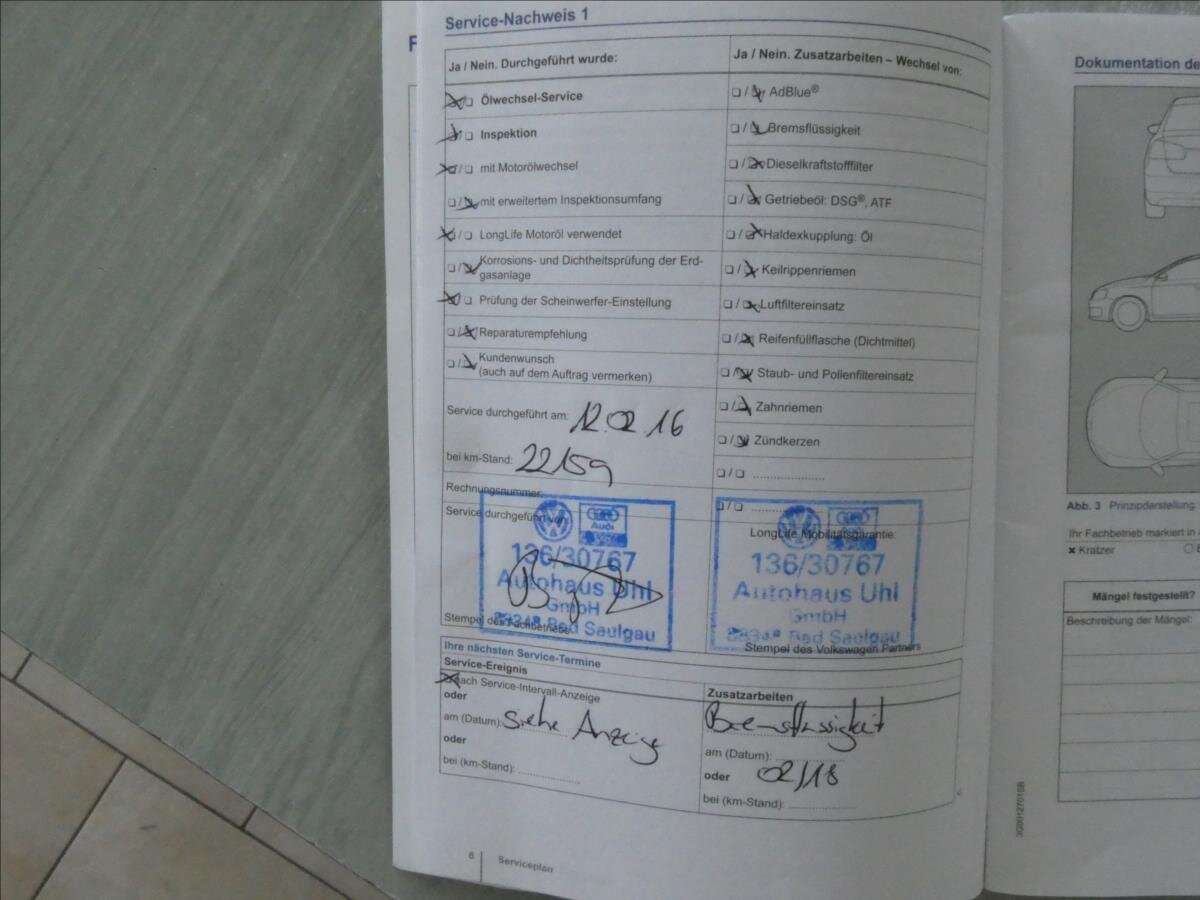 Service-Nachweis 1
Ja / Nein. Durchgeführt wurde:
Ölwechsel-Service
Inspektion
mit Motorölwechsel
mit erweitertem Inspektionsumfang
LongLife Motoröl verwendet
Korrosions- und Dichtheitsprüfung der Erd-
gasanlage
Prüfung der Scheinwerfer-Einstellung
Reparaturempfehlung
Kundenwunsch
(auch auf dem Auftrag vermerken)
Service durchgeführt am: 12.02.16
bei km-Stand: 22159
Rechnungsnummer:
Service durchgeführt von:
Audi
136/30767
Autohaus Uhl
GmbH
88348 Bad Saulgau
Stempel des Fachbetriebs
Ja / Nein. Zusatzarbeiten – Wechsel von:
AdBlue®
Bremsflüssigkeit
Dieselkraftstofffilter
Getriebeöl: DSG®, ATF
Haldexkupplung: Öl
Keilrippenriemen
Luftfiltereinsatz
Reifenfüllflasche (Dichtmittel)
Staub- und Pollenfiltereinsatz
Zahnriemen
Zündkerzen
LongLife Mobilitätsgarantie:
136/30767
Autohaus Uhl
GmbH
88348 Bad Saulgau
Stempel des Volkswagen Partners
Ihre nächsten Service-Termine
Service-Ereignis
nach Service-Intervall-Anzeige
oder
am (Datum): siehe Anzeige
oder
bei (km-Stand):
Zusatzarbeiten
Bremsflüssigkeit
am (Datum):
oder 02/18
bei (km-Stand):
6
Serviceplan
Dokumentation de
Abb. 3 Prinzipdarstellung
Ihr Fachbetrieb markiert in
× Kratzer
Mängel festgestellt?
Beschreibung der Mängel: